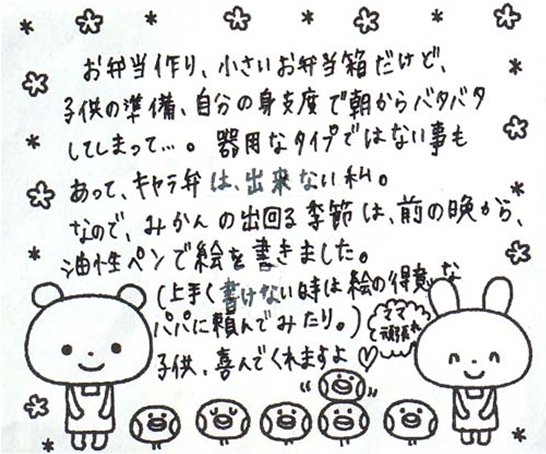 お弁当作り、小さいお弁当箱だけど、
子供の準備、自分の身支度で朝からバタバタ
してしまって…。器用なタイプではない事も
あって、キャラ弁は、出来ない私。
なので、みかんの出回る季節は、前の晩から、
油性ペンで絵を書きました。
(上手く書けない時は絵の得意な
パパに頼んでみたり。)
子供、喜んでくれますよ♡
ママ
頑張れ